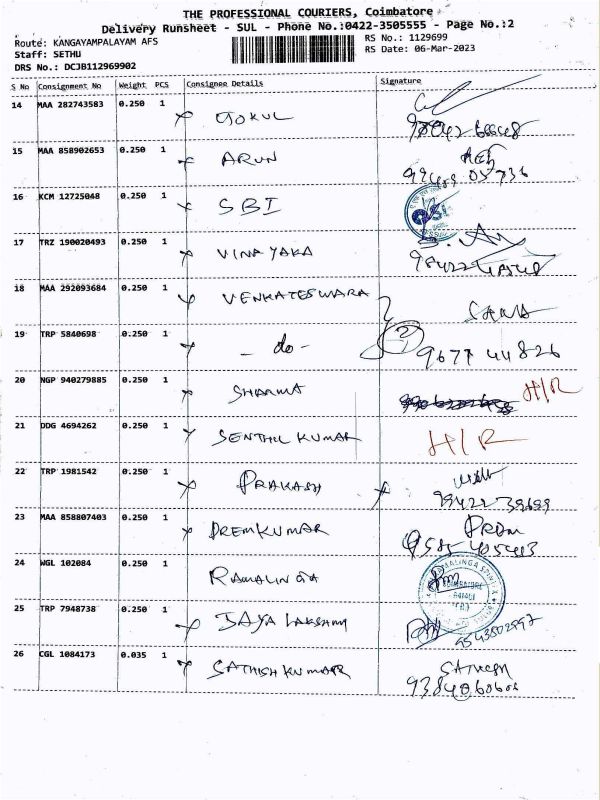 THE PROFESSIONAL COURIERS, Coimbatore
Delivery Runsheet - SUL - Phone No.:0422-3505555 - Page No.:2
Route: KANGAYAMPALAYAM AFS
RS No.: 1129699
Staff: SETHU
RS Date: 06-Mar-2023
DRS No.: DCJB112969902
S No Consignment No Weight PCS Consignee Details Signature
14 MAA 282743583 0.250 1 GOKUL
15 MAA 858902653 0.250 1 ARUN
16 KCM 12725048 0.250 1 SBI
17 TRZ 190020493 0.250 1 VINAYAKA
18 MAA 292093684 0.250 1 VENKATESWARA
19 TRP 5840698 0.250 1 - do - 2 9677 44826
20 NGP 940279885 0.250 1 SHARMA H/R
21 DDG 4694262 0.250 1 SENTHIL KUMAR H/R
22 TRP 1981542 0.250 1 PRAKASH 99422 39699
23 MAA 858807403 0.250 1 PREMKUMAR PREM
24 WGL 102084 0.250 1 RAMALINGA
25 TRP 7948738 0.250 1 JAYA LAKSHMI
26 CGL 1084173 0.035 1 SATHISH KUMAR SATHISH